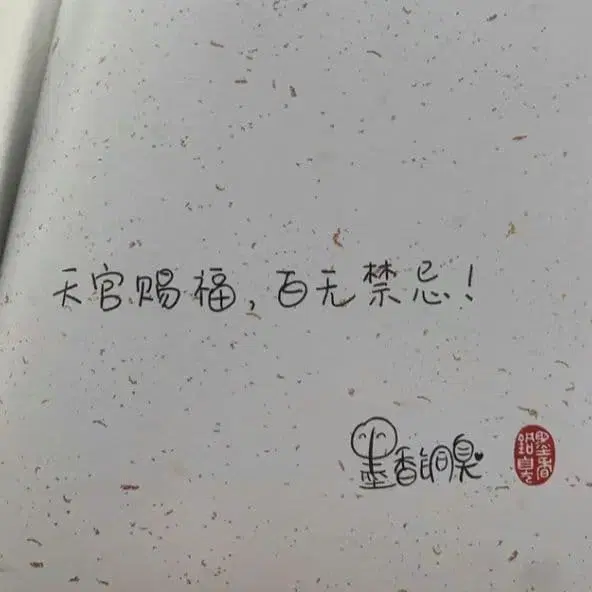 天官赐福，百无禁忌！
墨香铜臭
墨香铜臭